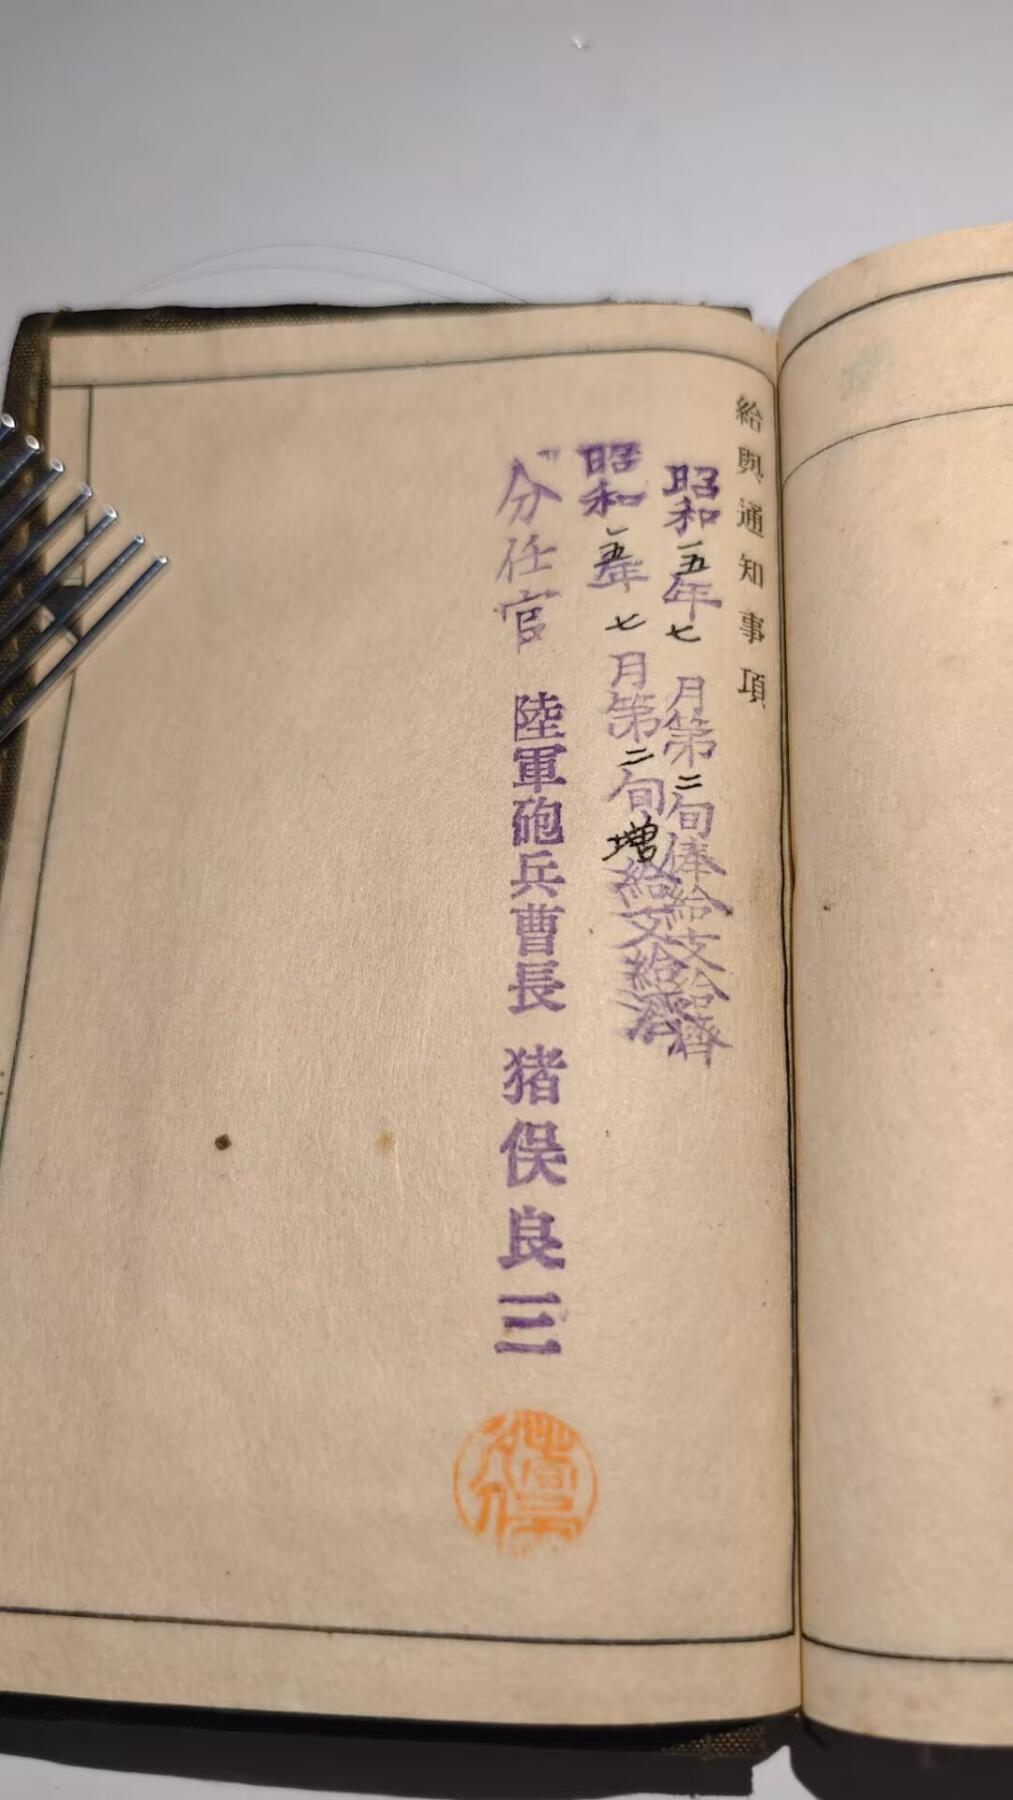 給與通知事項
昭和一五年七月第二旬俸給支給濟
昭和一五年七月第二旬増給支給濟
分任官 陸軍砲兵曹長 猪俣良三